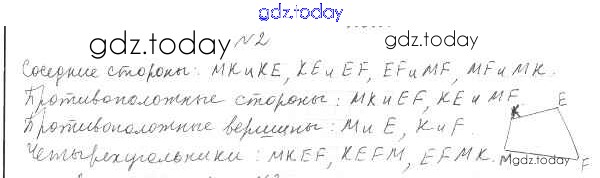 gdz.today
gdz.today №2 gdz.today
Соседние стороны: MK и KE, KE и EF, EF и MF, MF и MK.
Противоположные стороны: MK и EF, KE и MF.
Противоположные вершины: M и E, K и F.
Четырехугольники: MKEF, KEFM, EFMK.
K E
M gdz.today F